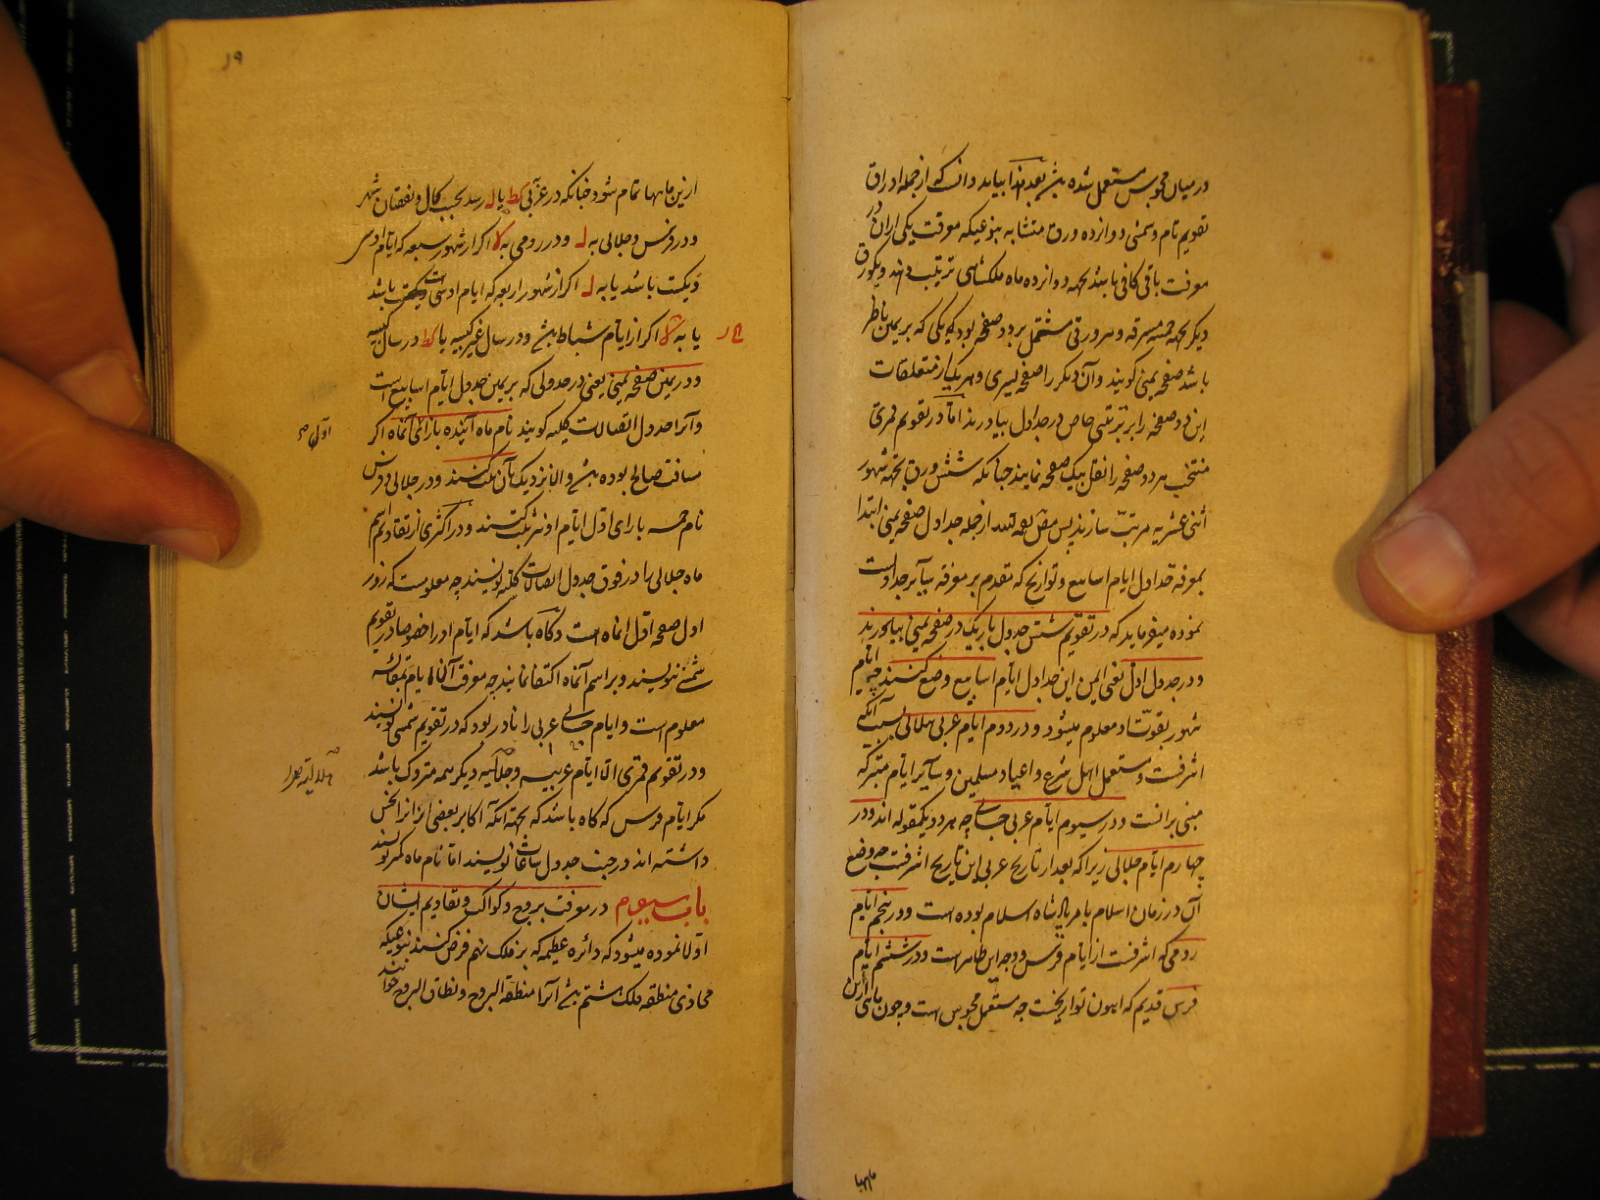 در میان مجوس مستعمل شده بعد هذا بباید دانست که از جمله اوراق
تقویم تام و شمسی دوازده ورق متشابه بنوعیکه موقت یکی ازان در
موقت باقی کافی باشد بجهه دوازده ماه ملکشاهی ترتیب دهند و یکورق
دیگر بجهه خمسه مسرقه و هر ورقی مشتمل بر دو صفحه بود که یکی که بر یمین ناظر
باشد صفحه یمنی گویند و آن دیگر را صفحه یسری و هر یک از متعلقات
این دو صفحه را بر ترتیبی خاص در جداول بیاورند اما در تقویم قمری
منتخب هر دو صفحه را نقل بیک صفحه نمایند چنانکه شش ورق بجهه شهور
اثنی عشریه مرتب سازند پس از جمله جداول صفحه یمنی ابتدا
بمعرفه جداول ایام اسابیع و تواریخ که مقدم بر معرفه سایر جداولست
نموده میفرماید که در تقویم شش جدول باریک در صفحه یمنی بیاورند
و در جدول اول یعنی ایمن این جداول ایام اسابیع وضع کنند چه ایام
شهور بقوت او معلوم میشود و در دوم ایام عربی هلالی بسبب آنکه
اشرفست و مستعمل اهل شرع و اعیاد مسلمین و سایر ایام متبرکه
مبنی برانست و در سیوم ایام عربی حسابی چه هر دو یکمقوله اند و در
چهارم ایام جلالی زیرا که بعد از تاریخ عربی این تاریخ اشرفست چه وضع
آن در زمان اسلام بامر پادشاه اسلام بوده است و در پنجم ایام
رومی که اشرفست از ایام فرس و وجه این ظاهر است و در ششم ایام
فرس قدیم که اهون تواریخست چه مستعمل مجوس است و چون ماهی ازین
ماهها
۱۹
ازین ماهها تمام شود چنانکه در عربی کط یا ل رسد بحسب کمال و نقصان شهر
و در فرس و جلالی به ل و در رومی به لا اگر از شهور سبعه که ایام او سی
و یکست باشد یا به ل اگر از شهور اربعه که ایام او سی است باشد
یا به کح اگر از ایام شباط و در سال غیر کبیسه یا کط در سال کبیسه
و در یمین صفحه یمنی یعنی در جدولی که بر یمین جدول ایام اسابیع است
و آنرا جدول اتصالات کلیه گویند نام ماه آینده بازائی آنماه اگر
مسافت صالح بوده و الا نزدیک بآن ثبت کنند و در جلالی و فرس
نام خمسه بازای اول ایام او نیز ثبت کنند و در اکثری از تقاویم اسم
ماه جلالی را در فوق جدول اتصالات کلیه نویسند چه معلومست که روز
اول صفحه اول آنماه است و گاه باشد که ایام او را خصوصا در تقویم
شمسی ننویسند و بر اسم آنماه اکتفا نمایند چه معرفت آن از ایام
معلوم است و ایام حسابی عربی را نادر بود که در تقویم شمسی نویسند
و در تقویم قمری اما ایام عربیه و جلالیه دیگر همه متروک باشد
مگر ایام فرس که گاه باشد که بجهته آنکه اکابر بعضی از انرا نحس
داشته اند در جنب جدول ساعات نویسند اما نام ماه کمتر نویسند
باب سیوم در معرفت بروج و کواکب و تقاویم ایشان
اولا نموده میشود که دائره عظیمه که بر فلک نهم فرض کنند بنوعیکه
محاذی منطقه فلک هشتم آنرا منطقة البروج و نطاق البروج خوانند